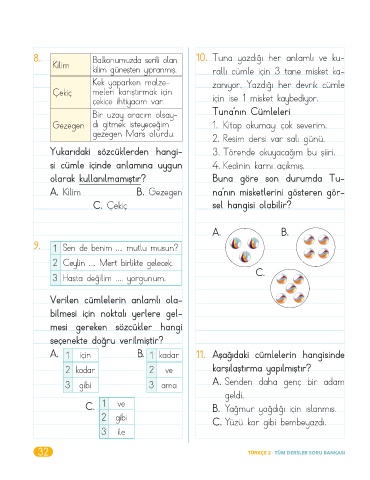 8.
Kilim
Balkonumuzda serili olan
kilim güneşten yıpranmış.
Çekiç
Kek yaparken malze-
meleri karıştırmak için
çekice ihtiyacım var.
Gezegen
Bir uzay aracım olsay-
dı gitmek isteyeceğim
gezegen Mars olurdu.
Yukarıdaki sözcüklerden hangi-
si cümle içinde anlamına uygun
olarak kullanılmamıştır?
A. Kilim
B. Gezegen
C. Çekiç
9.
1 Sen de benim ... mutlu musun?
2 Ceylin ... Mert birlikte gelecek.
3 Hasta değilim .... yorgunum.
Verilen cümlelerin anlamlı ola-
bilmesi için noktalı yerlere gel-
mesi gereken sözcükler hangi
seçenekte doğru verilmiştir?
A. 1 için
2 kadar
3 gibi
B. 1 kadar
2 ve
3 ama
C. 1 ve
2 gibi
3 ile
10. Tuna yazdığı her anlamlı ve ku-
rallı cümle için 3 tane misket ka-
zanıyor. Yazdığı her devrik cümle
için ise 1 misket kaybediyor.
Tuna'nın Cümleleri
1. Kitap okumayı çok severim.
2. Resim dersi var salı günü.
3. Törende okuyacağım bu şiiri.
4. Kedinin karnı acıkmış.
Buna göre son durumda Tu-
na'nın misketlerini gösteren gör-
sel hangisi olabilir?
A.
B.
C.
11. Aşağıdaki cümlelerin hangisinde
karşılaştırma yapılmıştır?
A. Senden daha genç bir adam
geldi.
B. Yağmur yağdığı için ıslanmış.
C. Yüzü kar gibi bembeyazdı.
32
TÜRKÇE 2 - TÜM DERSLER SORU BANKASI